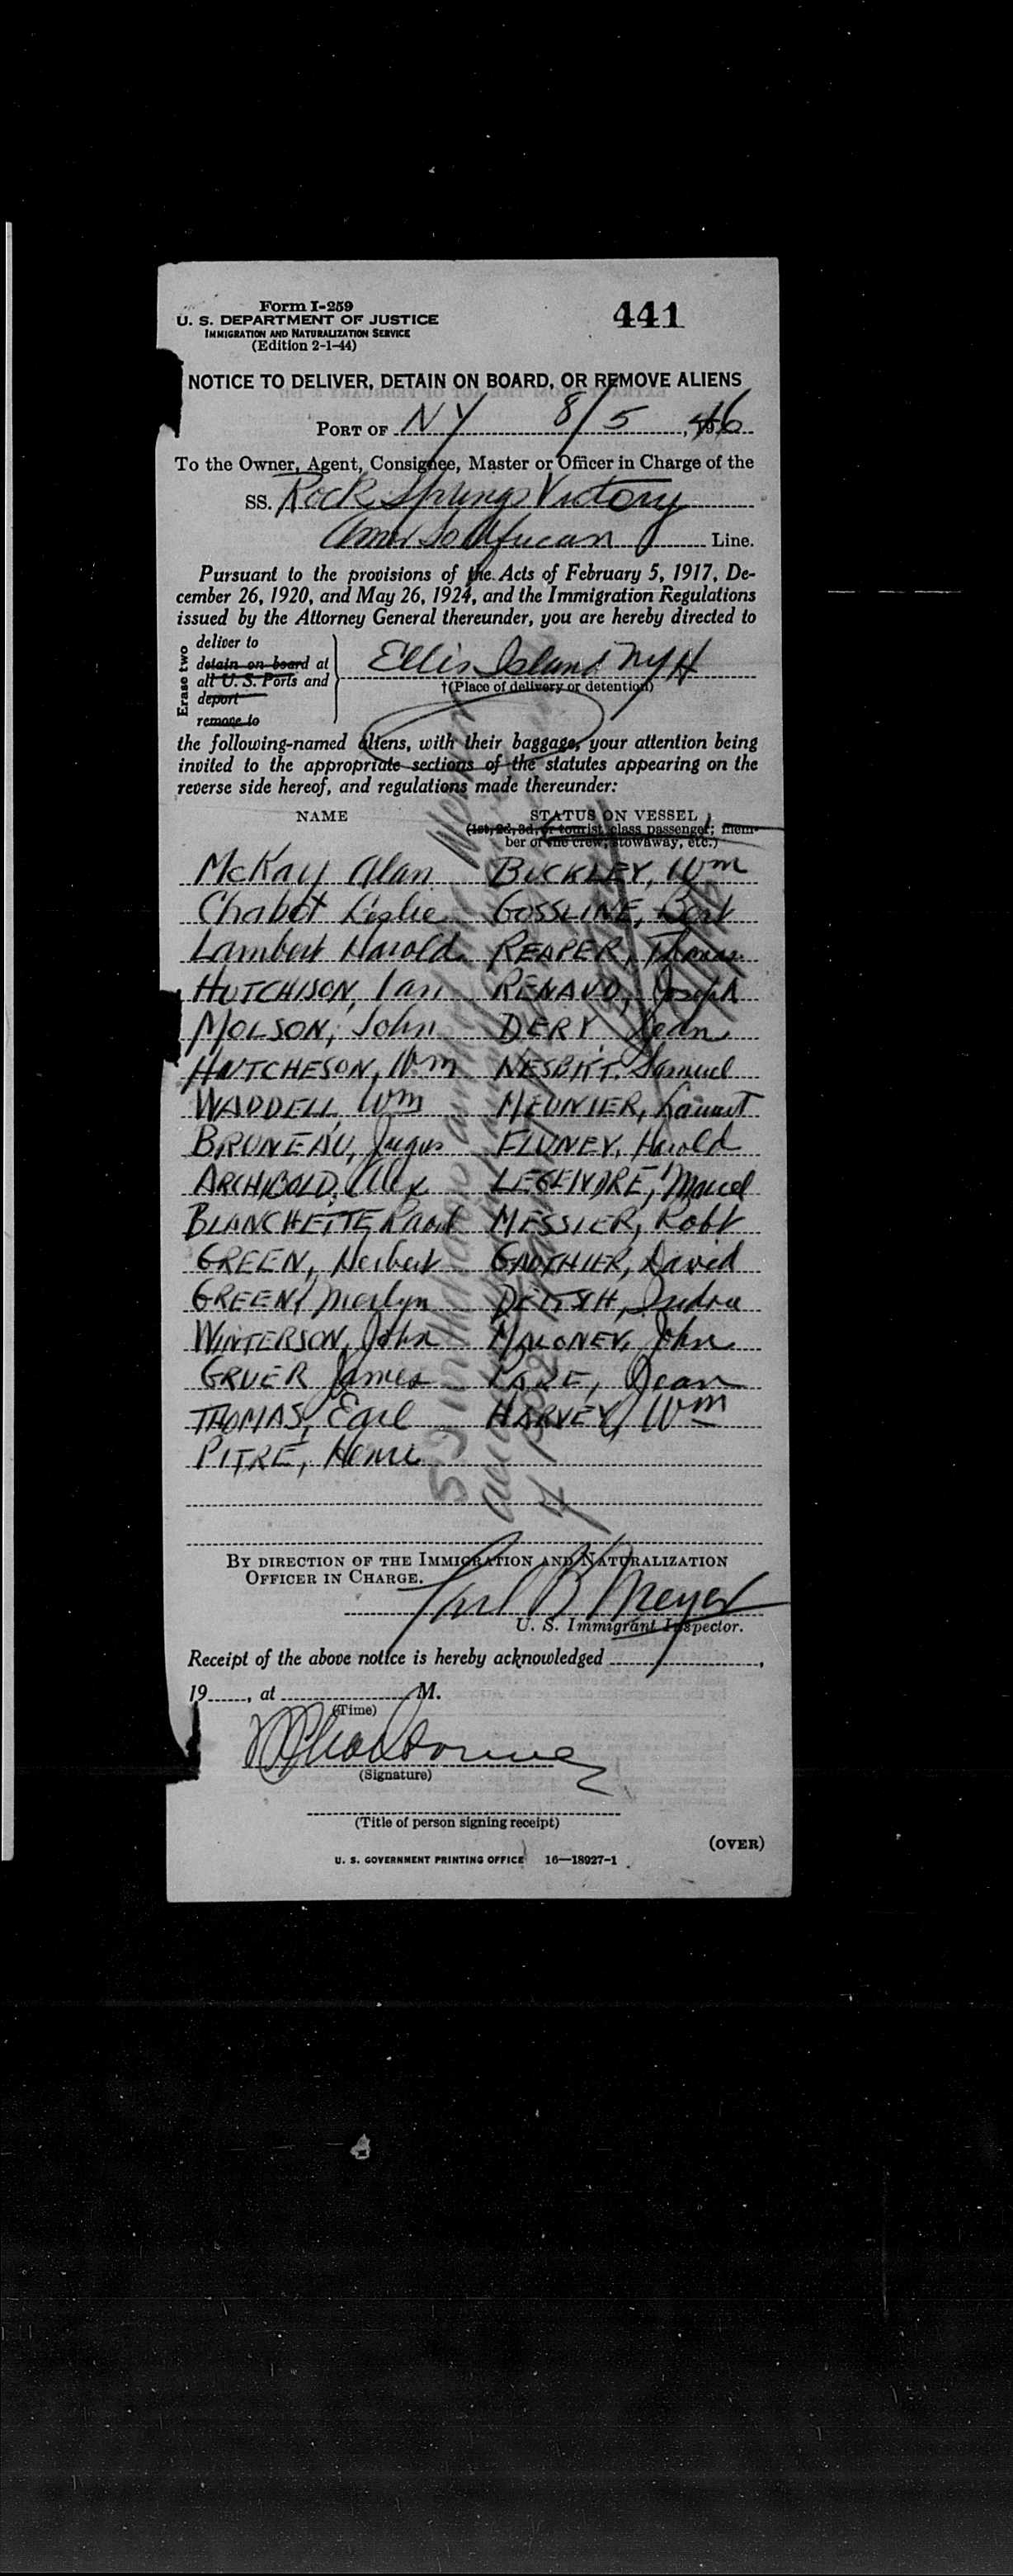 Form I-259
U. S. DEPARTMENT OF JUSTICE
IMMIGRATION AND NATURALIZATION SERVICE
(Edition 2-1-44)
441
NOTICE TO DELIVER, DETAIN ON BOARD, OR REMOVE ALIENS
PORT OF NY 8/5, 46
To the Owner, Agent, Consignee, Master or Officer in Charge of the
SS. Rock Springs Victory
Amer So African Line.
Pursuant to the provisions of the Acts of February 5, 1917, De-
cember 26, 1920, and May 26, 1924, and the Immigration Regulations
issued by the Attorney General thereunder, you are hereby directed to
Erase two
deliver to
detain on board at
all U. S. Ports and
deport
remove to
Ellis Island NYH
†(Place of delivery or detention)
the following-named aliens, with their baggage, your attention being
invited to the appropriate sections of the statutes appearing on the
reverse side hereof, and regulations made thereunder:
NAME STATUS ON VESSEL
(1st, 2d, 3d, or tourist class passenger; mem-
ber of the crew, stowaway, etc.)
McKay Alan BUCKLEY, Wm
Chabot Leslie GOSSLINE, Bert
Lambert Harold REAPER, Thomas
HUTCHISON, Ian RENAUD, Joseph
MOLSON, John DERY, Jean
HUTCHESON, Wm NESBITT, Samuel
WADDELL Wm MEUNIER,
BRUNEAU, Harold
ARCHIBOLD, Alex LEGENDRE, Marcel
BLANCHETTE Paul MESSIER, Robt
GREEN, Herbert GAUTHIER, David
GREEN, Merlyn
WINTERSON, John MALONEY, John
GRUER James PARE, Jean
THOMAS, Earl HARVEY, Wm
PITRE, Henri
BY DIRECTION OF THE IMMIGRATION AND NATURALIZATION
OFFICER IN CHARGE.
B Meyer
U. S. Immigrant Inspector.
Receipt of the above notice is hereby acknowledged ,
19 , at M.
(Time)
(Signature)
(Title of person signing receipt)
(OVER)
U. S. GOVERNMENT PRINTING OFFICE 16—18927-1